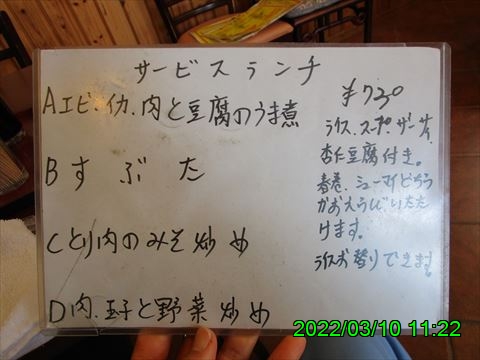 サービスランチ
Aエビ.イカ.肉と豆腐のうま煮
Bすぶた
Cとり肉のみそ炒め
D肉.玉子と野菜炒め
¥730
ライス.スープ.ザーサイ.
杏仁豆腐付き。
春巻.シューマイどちら
かおえらびいただ
けます。
ライスお替りできます。
2022/03/10 11:22